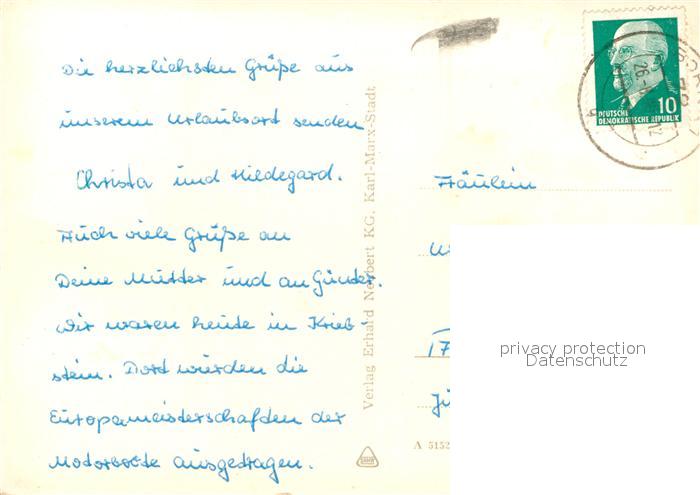 Die herzlichsten Grüße aus
unserem Urlaubsort senden
Christa und Hildegard.
Auch viele Grüße an
Deine Mutter und an Günter.
Wir waren heute in Krieb-
stein. Dort wurden die
Europameisterschaften der
Motorboote ausgetragen.
Verlag Erhard Neubert KG, Karl-Marx-Stadt
10
DEUTSCHE
DEMOKRATISCHE REPUBLIK
Fräulein
17
A 5152
privacy protection
Datenschutz